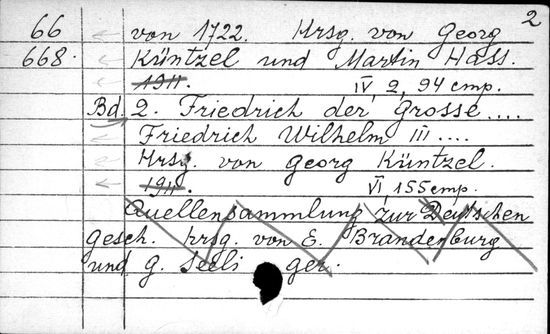 2
66 von 1722. Hrsg. von Georg
668. Küntzel und Martin Hass.
1911. IV 2, 94 cmp.
Bd. 2. Friedrich der Grosse ....
Friedrich Wilhelm III ....
Hrsg. von Georg Küntzel.
1911. VI 155 cmp.
Quellensammlung zur Deutschen
gesch. hrsg. von E. Brandenburg
und G. Seeli ger.